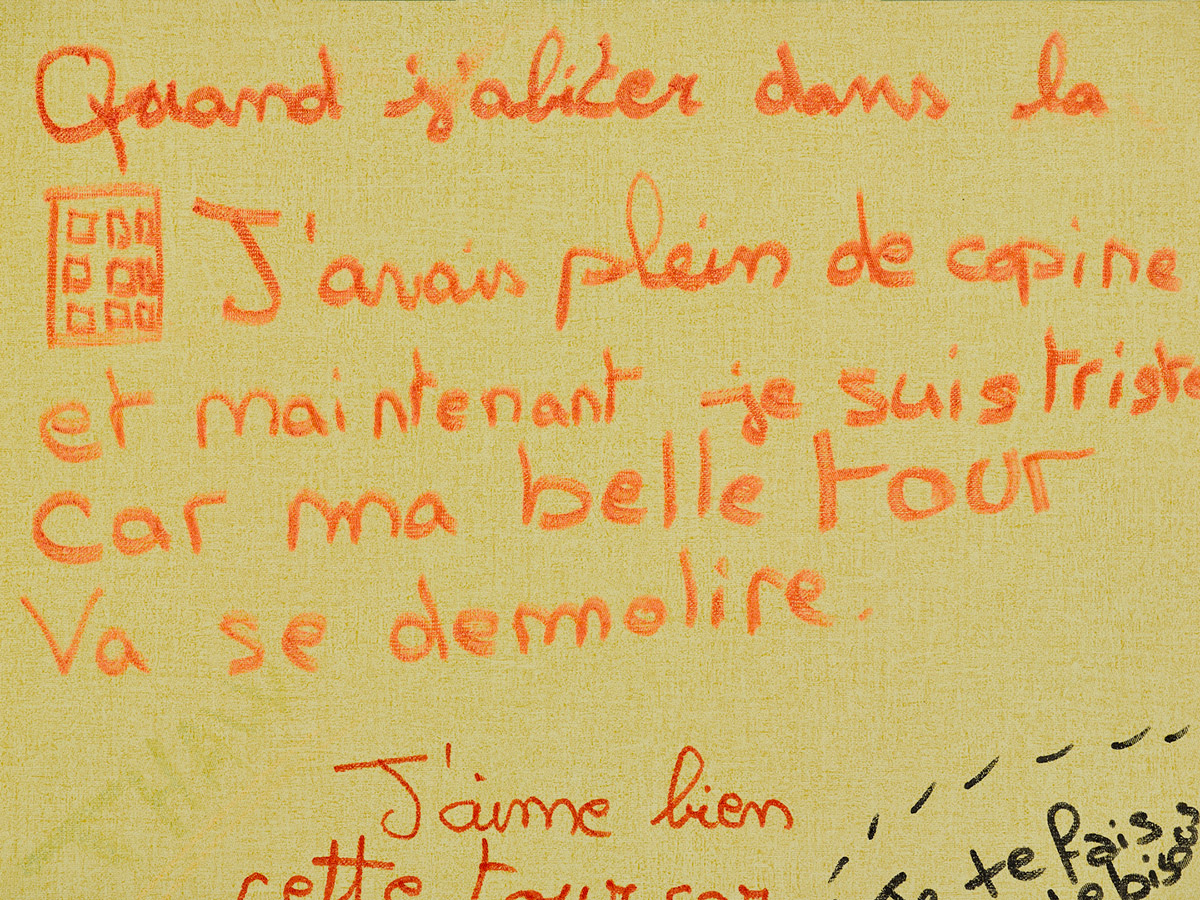 Quand j'abiter dans la
J'avais plein de copine
et maintenant je suis triste
Car ma belle tour
Va se demolire.
J'aime bien
cette tour car
te fais
bisous